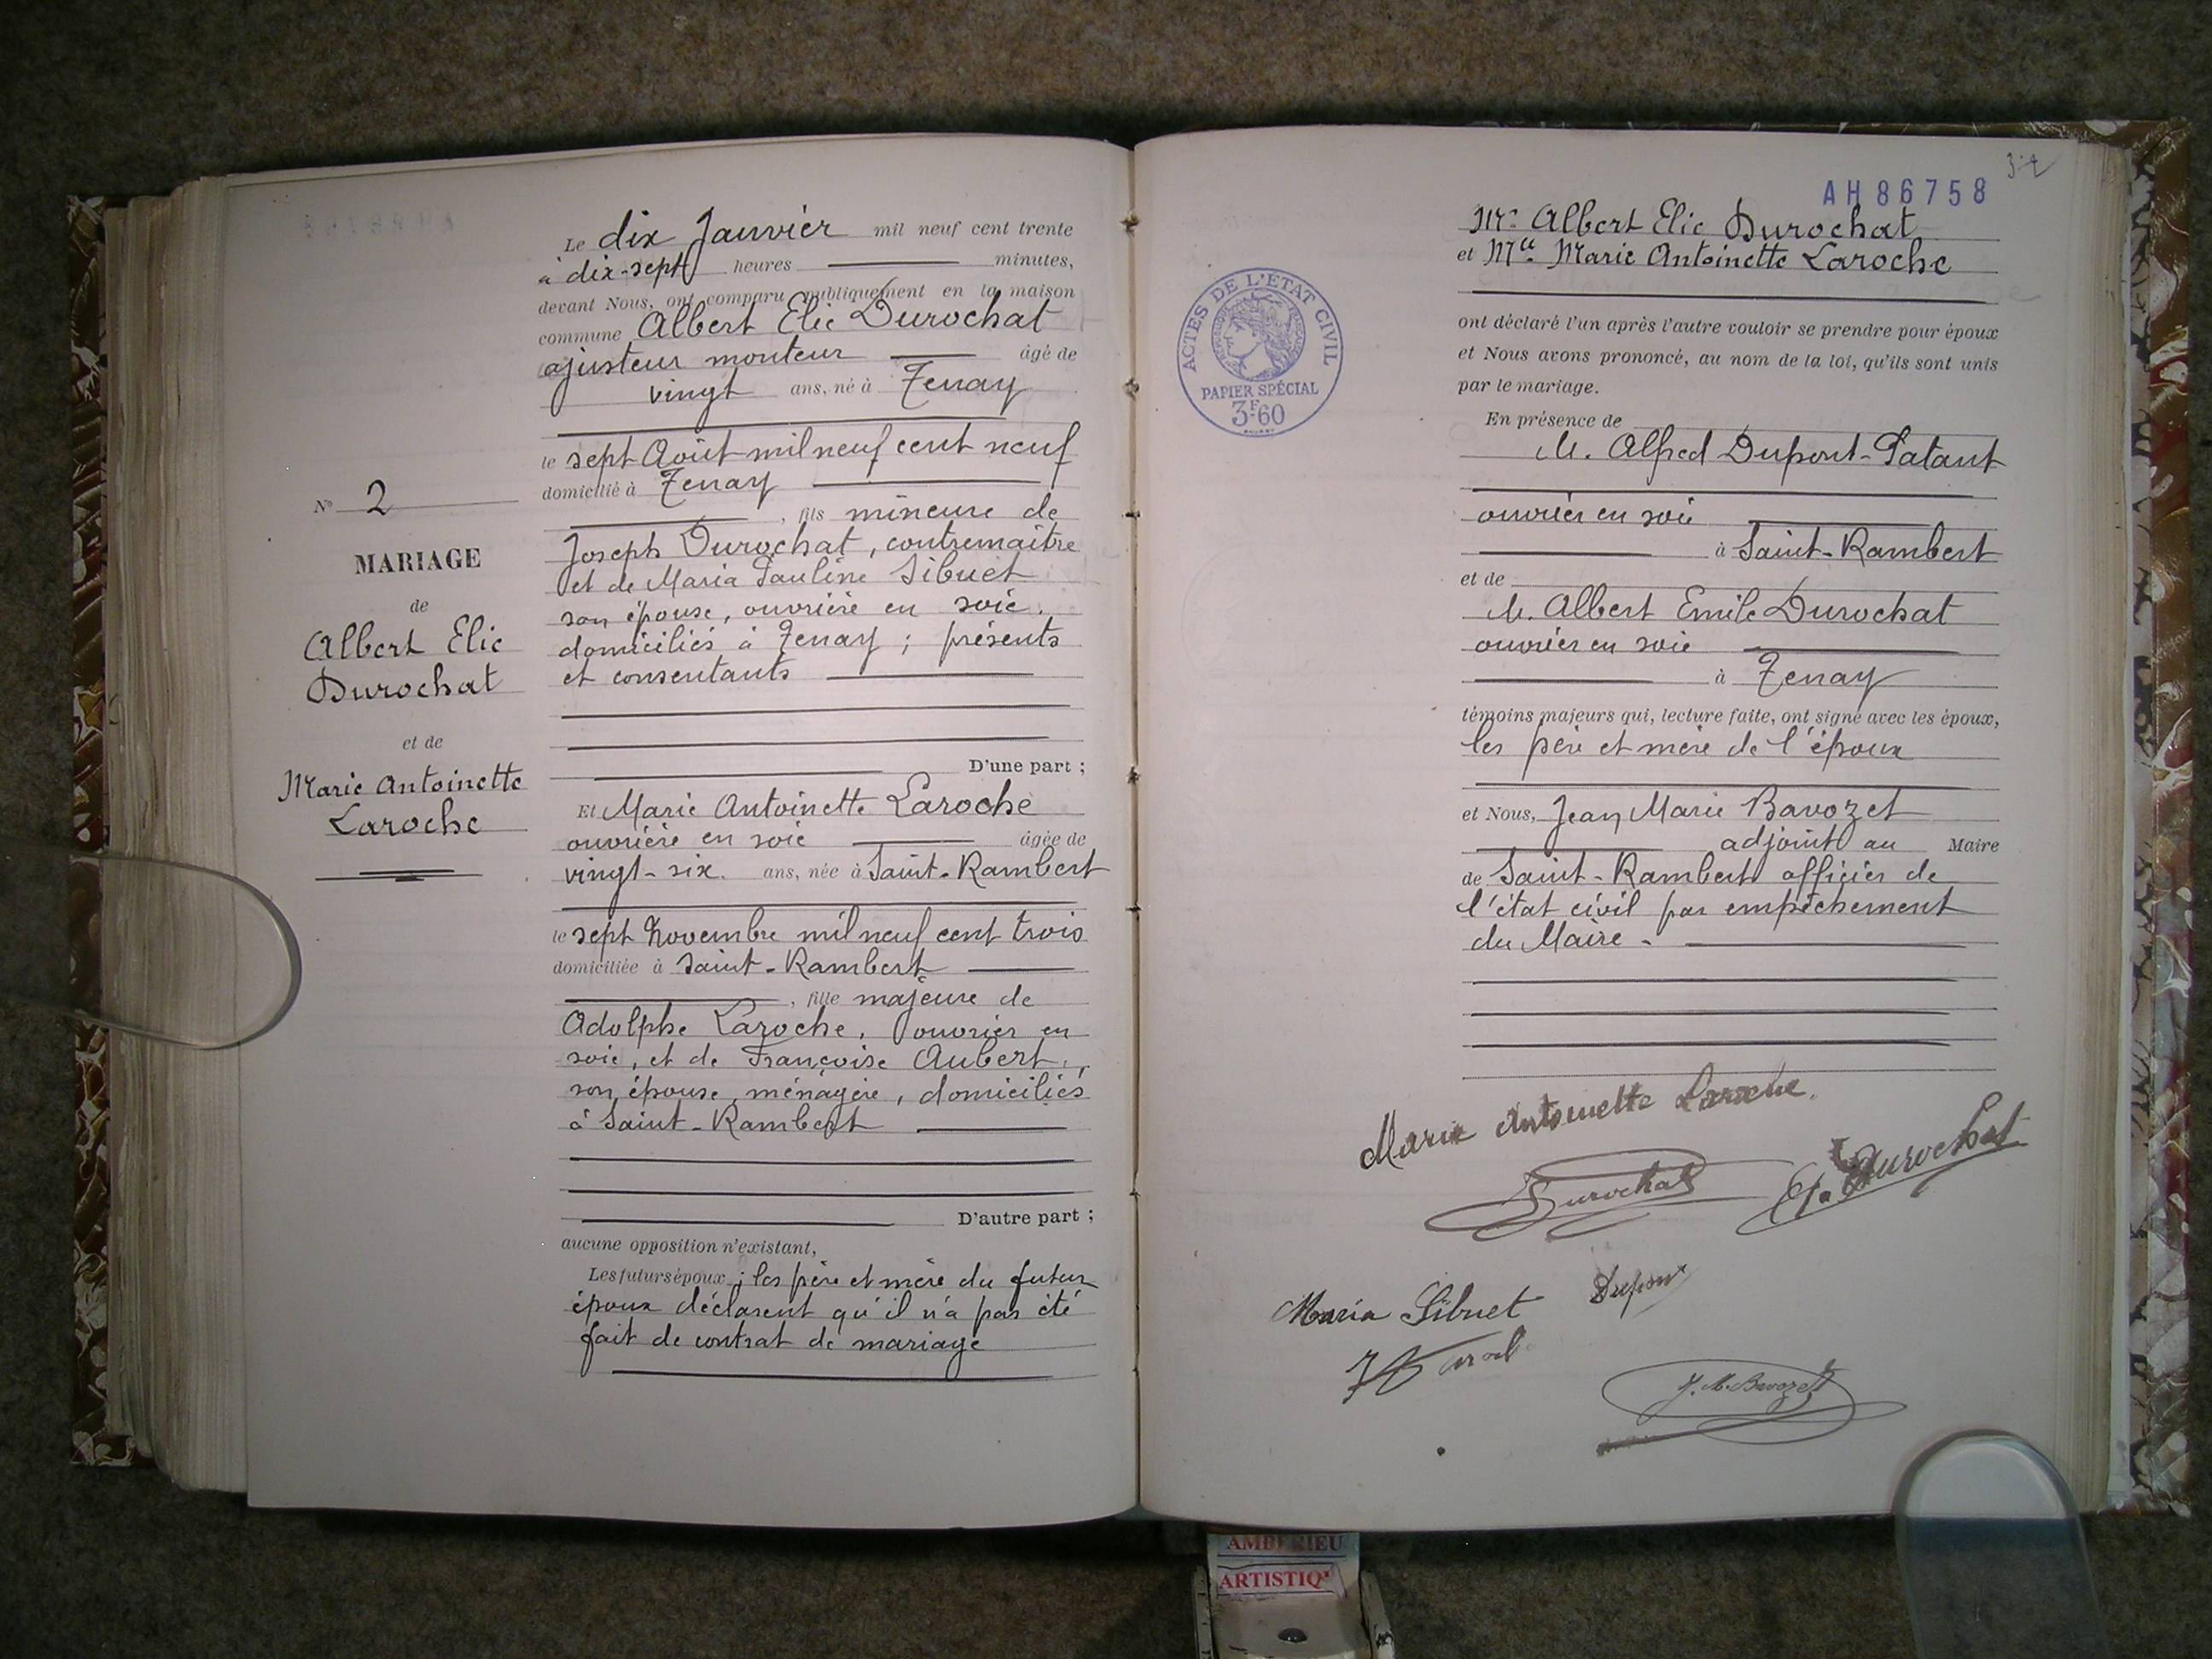 Le dix Janvier mil neuf cent trente
à dix-sept heures minutes,
devant Nous, ont comparu publiquement en la maison
commune Albert Elie Durochat
ajusteur monteur âgé de
vingt ans, né à Tenay
le sept Août mil neuf cent neuf
domicilié à Tenay
, fils mineure de
Joseph Durochat, contremaitre
et de Maria Pauline Sibuet
son épouse, ouvrière en soie.
domiciliés à Tenay ; présents
et consentants
D'une part ;
Et Marie Antoinette Laroche
ouvrière en soie âgée de
vingt-six. ans, née à Saint-Rambert
le sept Novembre mil neuf cent trois
domiciliée à Saint-Rambert
, fille majeure de
Adolphe Laroche, ouvrier en
soie, et de Françoise Aubert,
son épouse, ménagère, domiciliés
à Saint-Rambert
D'autre part ;
aucune opposition n'existant,
Les futurs époux ; les père et mère du futur
époux déclarent qu'il n'a pas été
fait de contrat de mariage
N° 2
MARIAGE
de
Albert Elie
Durochat
et de
Marie Antoinette
Laroche
AH86758
ACTES DE L'ÉTAT CIVIL
PAPIER SPÉCIAL
3F60
Mr. Albert Elie Durochat
et Mlle Marie Antoinette Laroche
ont déclaré l'un après l'autre vouloir se prendre pour époux
et Nous avons prononcé, au nom de la loi, qu'ils sont unis
par le mariage.
En présence de
M. Alfred Dupont-Patant
ouvrier en soie
à Saint-Rambert
et de
M. Albert Emile Durochat
ouvrier en soie
à Tenay
témoins majeurs qui, lecture faite, ont signé avec les époux,
les père et mère de l'époux
et Nous, Jean Marie Bavozet
adjoint au Maire
de Saint-Rambert officier de
l'état civil par empêchement
du Maire.
Marie Antoinette Laroche.
Durochat
Durochat
Maria Sibuet
Dupont
J. M. Bavozet
AMBERIEU
ARTISTIQ